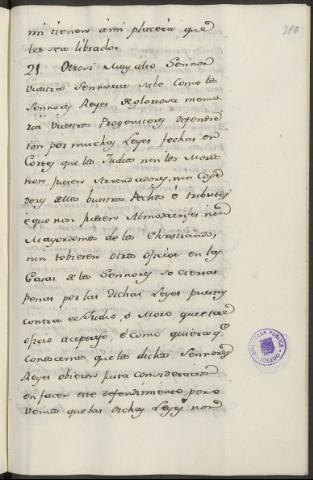 210
mi tienen à mi placerà que
les sea librado.
21 Otrosi Muy alto Sennor
vuestra Sennoria sabe como los
Sennores Reyes de gloriosa memo
ria vuestros Progenitores defendie
ron por muchas Leyes fechas en
Cortes que los Judios nin los Moros
non fuesen Arrendadores, nin Coje
dores de los vuestros Pechos è tributos
è que non fuesen Almoxarifes nin
Mayordomos de los Christianos,
nin tobiesen otro oficio en las
Casas de los Sennores so ciertas
penas por las dichas Leyes puestas
contra el Judio, o Moro que tal
oficio aceptase, è como quiera q.e
conoscemos que los dichos Sennores
Reyes obieron justa consideracion
en facer este defendimiento, pero
vemos que las dichas Leyes non
BIBLIOTECA PUBLICA
TOLEDO